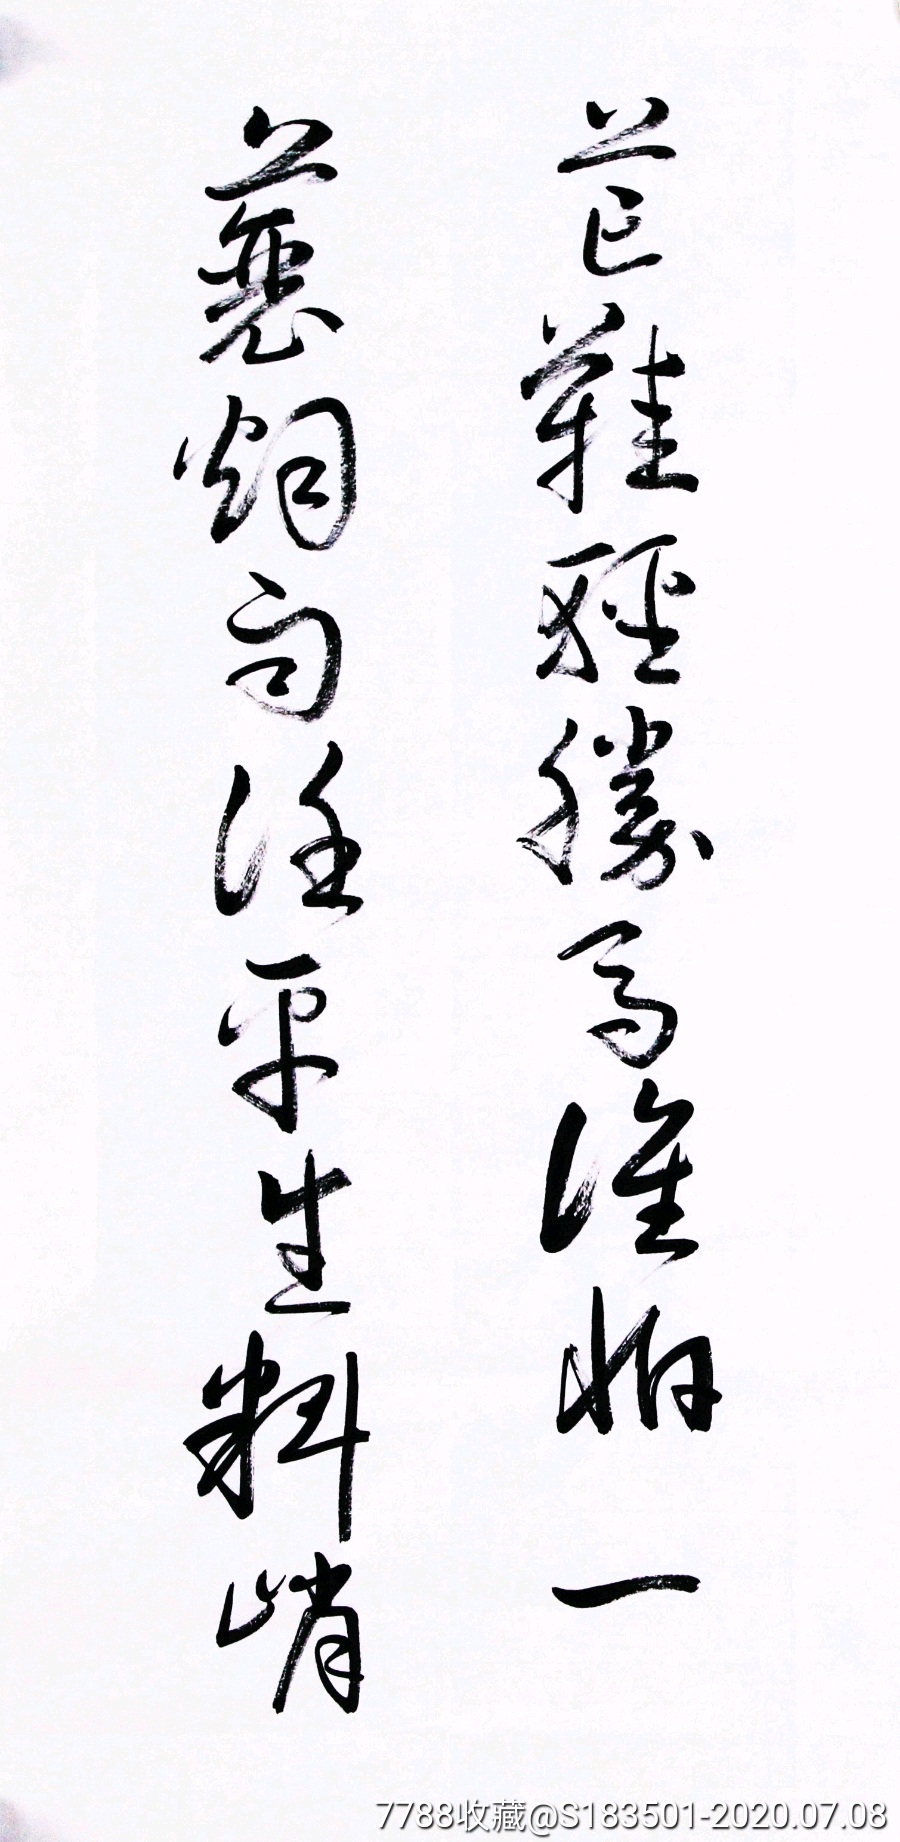 芒鞋輕勝馬誰怕一
蓑烟雨任平生料峭
7788收藏@S183501-2020.07.08